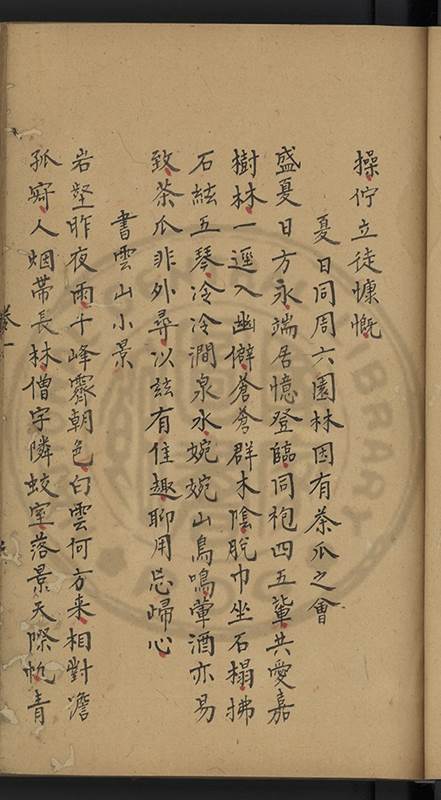 操佇立徒慷慨
夏日同周六園林因有茶瓜之會
盛夏日方永端居憶登臨同袍四五輩共愛嘉
樹林一逕入幽僻蒼蒼群木陰脫巾坐石榻拂
石絃五琴泠泠澗泉水婉婉山鳥鳴葷酒亦易
致茶瓜非外尋以茲有佳趣聊用忘歸心
書雲山小景
岩壑昨夜雨千峰霽朝色白雲何方来相對澹
孤㝛人烟帯長林僧宇隣蛟室落景天際帆青